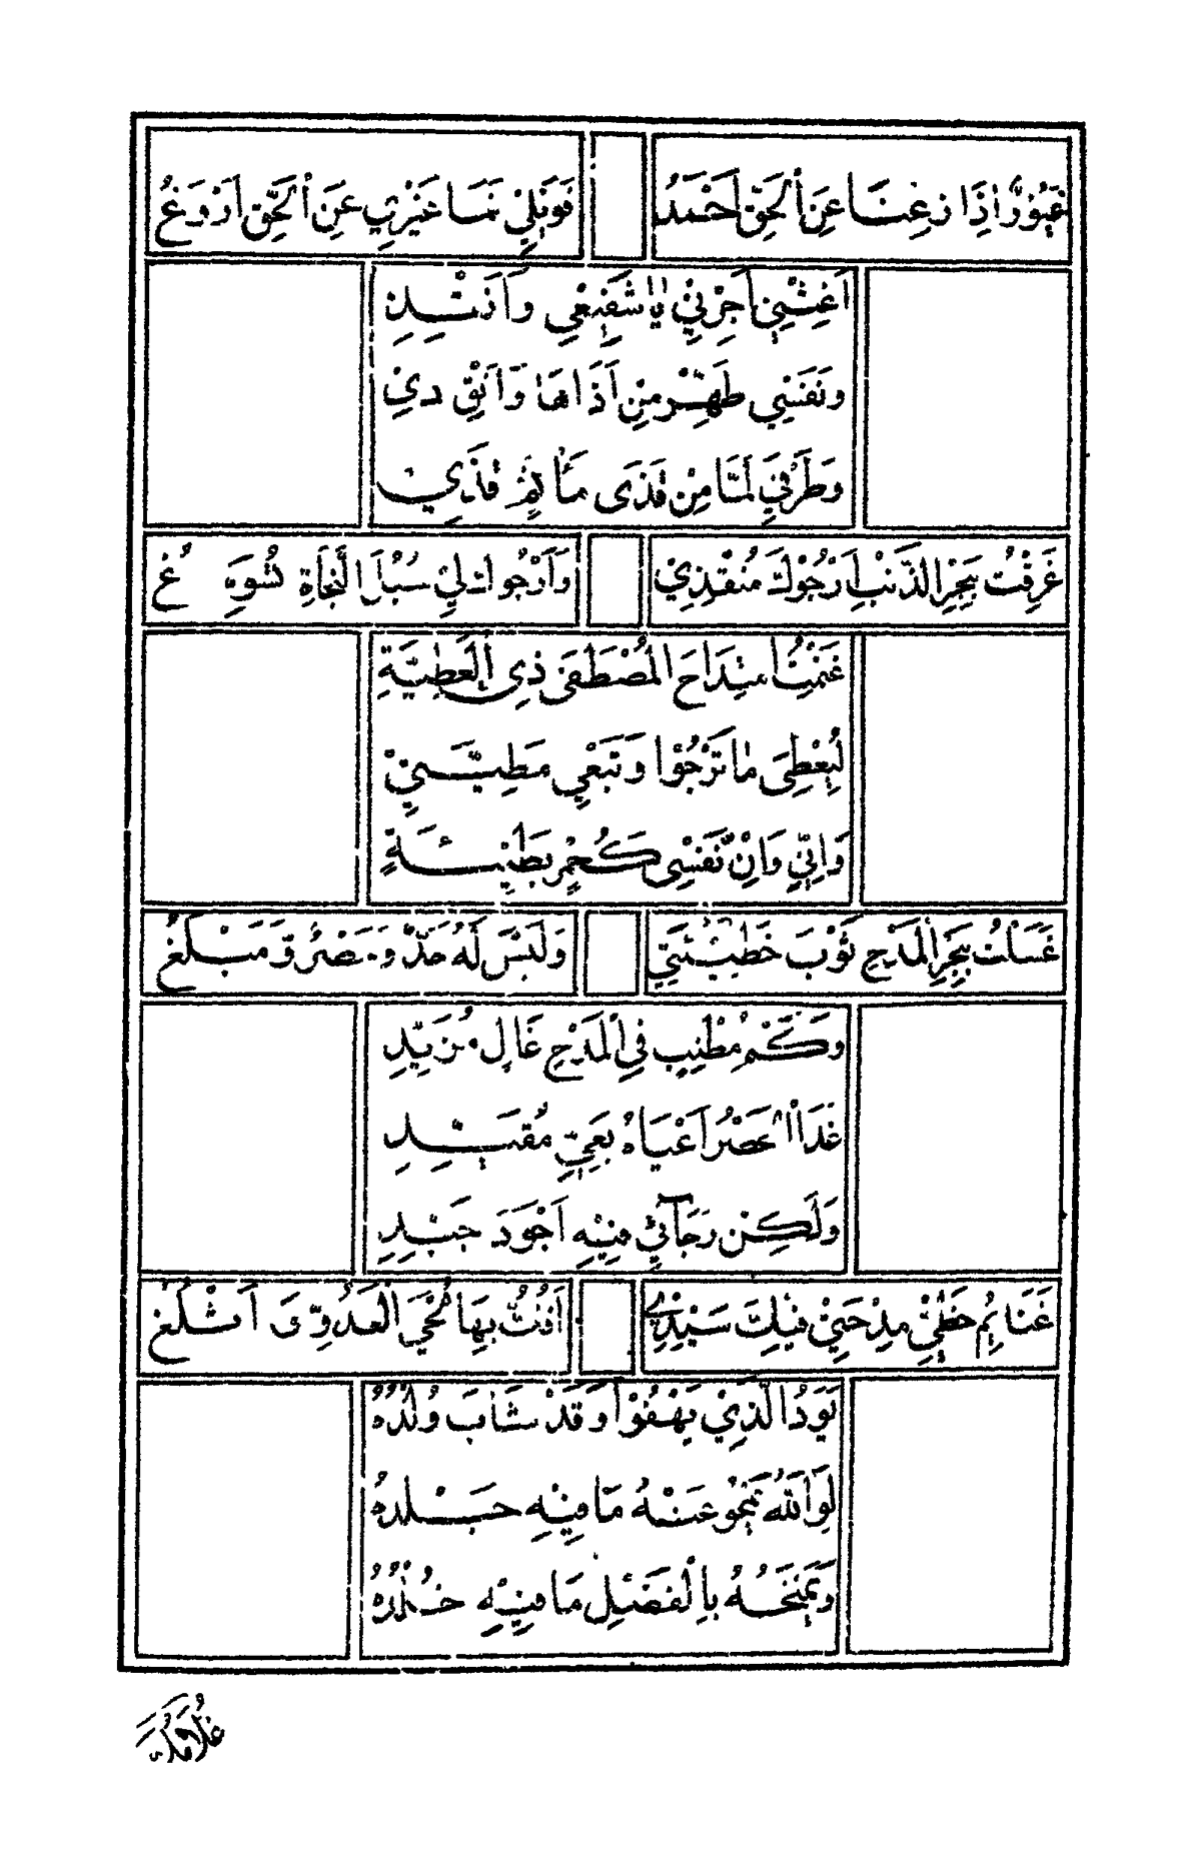 غَيُوْرٌ اِذَا زِغْنَا عَنِ الْحَقِّ اَحْمَدُ فَوَيْلِيْ نَمَا غَيْرِيْ عَنِ الْحَقِّ اَرْوَغُ
اَغِثْنِيْ اَجِرْنِيْ يَا شَفِيْعِيْ وَاَنْتَ لِذِ
وَنَفْسِيْ طَهِّرْ مِنْ اَذَاهَا وَاَنْقِ ذِيْ
وَطَرْفِيْ لَمَّا مِنْ قَذَى مَأْثَمٍ قَذِيْ
غَرِقْتُ بِبَحْرِ الذَّنْبِ اَرْجُوْكَ مُنْقِذِيْ وَاَرْجُوكَ لِيْ سُبُلَ النَّجَاةِ تُسَوِّغُ
غَنِمْتُ امْتِدَاحَ الْمُصْطَفَى ذِي الْعَطِيَّةِ
لِيُعْطِىَ مَا تَرْجُوْا وَتَبْغِي مَطِيَّتِيْ
وَاِنِّي وَاِنْ نَفْسِى كَحُمْرٍ بَطِيْئَةٍ
غَسَلْتُ بِبَحْرِ الْمَدْحِ ثَوْبَ خَطِيْئَتِيْ وَلَيْسَ لَهُ حَدٌّ وَحَصْرٌ وَّمَبْلَغُ
وَكَمْ مُطْنِبٍ فِي الْمَدْحِ غَالٍ مُزَيِّدِ
غَدَا الْحَصْرُ اَعْيَاهُ بِعَيٍّ مُقَيَّدِ
وَلَكِنْ رَجَائِيْ فِيْهِ اَجْوَدَ جَيِّدِ
غَنَائِمُ حَظِّيْ مِدْحَتِيْ فِيْكَ سَيِّدِيْ اَفُتُّ بِهَا لُحْيَ الْعَدُوِّ وَ اَشْلَغُ
يَوَدُّ الَّذِيْ يَهْفُوْا وَقَدْ شَابَ وُلْدُهُ
لَوِ اللّٰهُ يَمْحُوْ عَنْهُ مَا فِيْهِ جَلْدُهُ
وَيَمْنَحُهُ بِالْفَضْلِ مَا فِيْهِ خُلْدُهُ